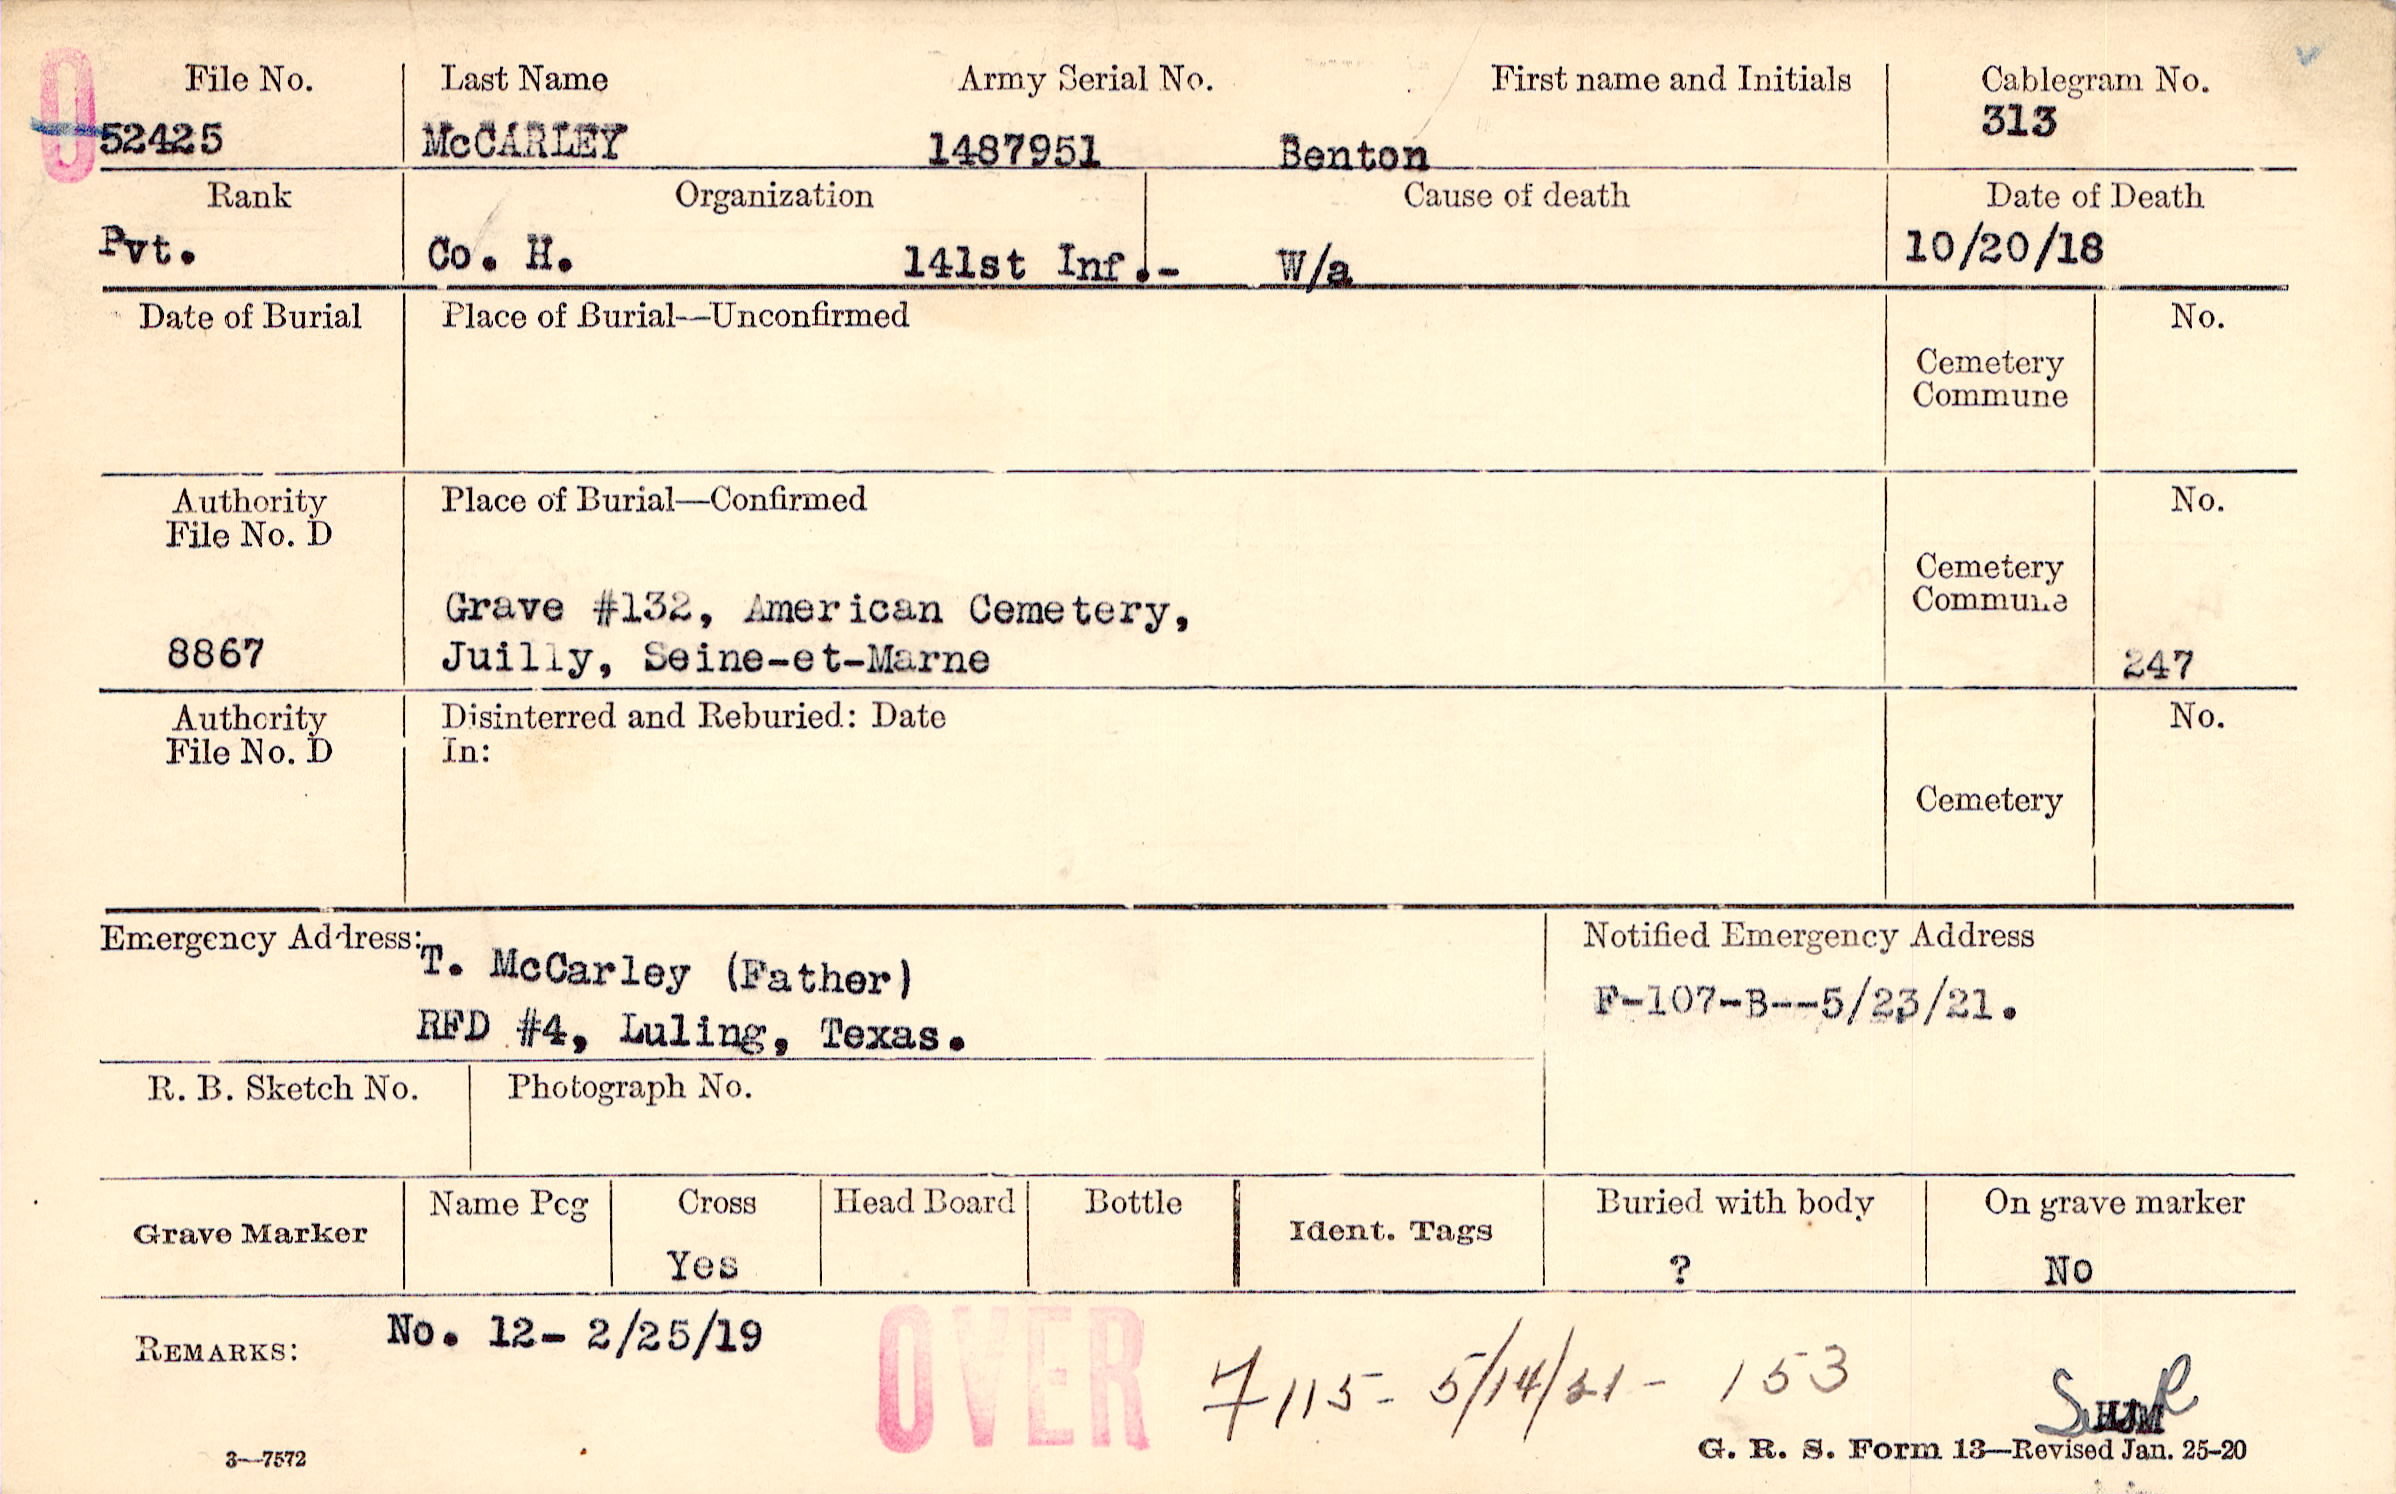 File No.
Last Name
Army Serial No.
First name and Initials
Cablegram No.
52425
McCARLEY
1487951
Benton
313
Rank
Organization
Cause of death
Date of Death
Pvt.
Co. H.
141st Inf.-
W/a
10/20/18
Date of Burial
Place of Burial—Unconfirmed
Cemetery
Commune
No.
Authority
File No. D
8867
Place of Burial—Confirmed
Grave #132, American Cemetery,
Juilly, Seine-et-Marne
Cemetery
Commune
No.
247
Authority
File No. D
Disinterred and Reburied: Date
In:
Cemetery
No.
Emergency Address:
T. McCarley (Father)
RFD #4, Luling, Texas.
Notified Emergency Address
F-107-B--5/23/21.
R. B. Sketch No.
Photograph No.
Grave Marker
Name Peg
Cross
Yes
Head Board
Bottle
Ident. Tags
Buried with body
?
On grave marker
No
REMARKS:
No. 12- 2/25/19
OVER
7115- 5/14/21- 153
HJM
3—7572
G. R. S. Form 13—Revised Jan. 25-20